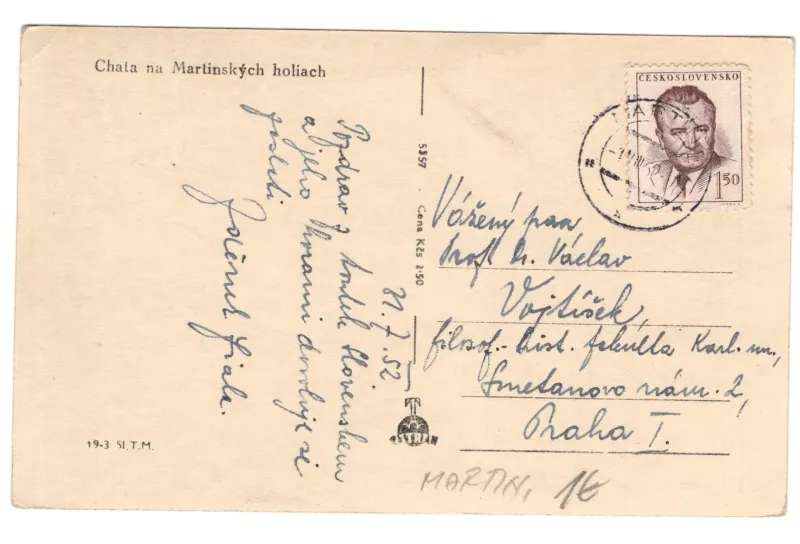 Chata na Martinských holiach
31. 7. 52
Pozdrav z toulek Slovenskem
a jeho horami dovoluje si
poslati
Zdeněk Fiala.
5357 Cena Kčs 2·50
19-3 Sl.T.M.
ČESKOSLOVENSKO
1 50
MARTIN
Vážený pan
Prof. Dr. Václav
Vojtíšek,
filosof.-hist. fakulta Karl. un.,
Smetanovo nám. 2,
Praha I.
MARTIN, 1€